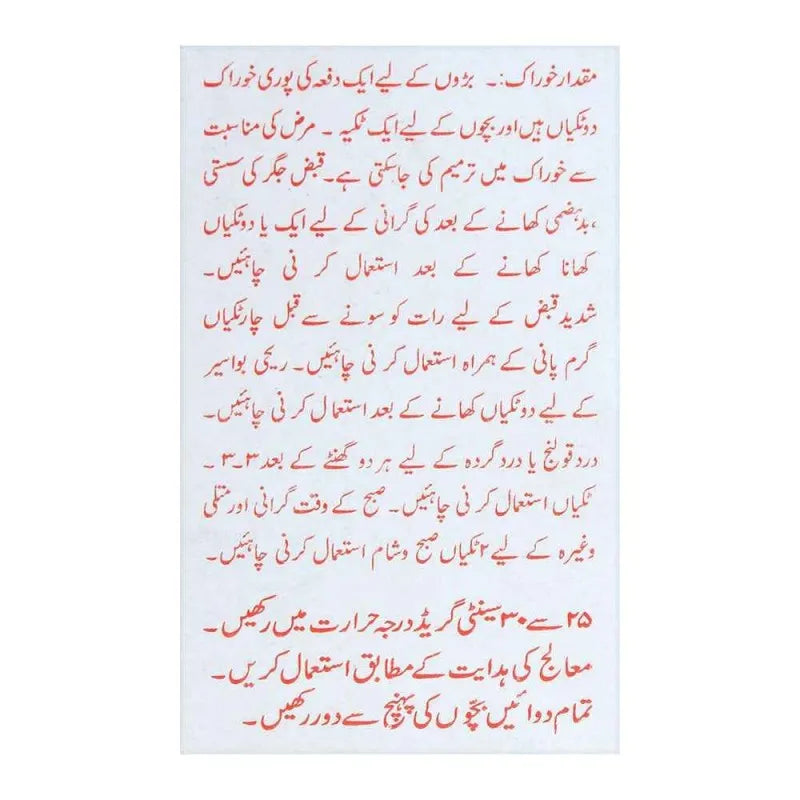 مقدار خوراک:۔ بڑوں کے لیے ایک دفعہ کی پوری خوراک
دو ٹکیاں ہیں اور بچوں کے لیے ایک ٹکیہ ۔ مرض کی مناسبت
سے خوراک میں ترمیم کی جاسکتی ہے۔ قبض جگر کی سستی
،بدہضمی کھانے کے بعد کی گرانی کے لیے ایک یا دو ٹکیاں
کھانا کھانے کے بعد استعمال کر نی چاہئیں۔
شدید قبض کے لیے رات کو سونے سے قبل چار ٹکیاں
گرم پانی کے ہمراہ استعمال کر نی چاہئیں۔ ریحی بواسیر
کے لیے دو ٹکیاں کھانے کے بعد استعمال کر نی چاہئیں۔
درد قولنج یا درد گردہ کے لیے ہر دو گھنٹے کے بعد ۳۔۳ ۔
ٹکیاں استعمال کر نی چاہئیں۔ صبح کے وقت گرانی اور متلی
وغیرہ کے لیے ۲ ٹکیاں صبح و شام استعمال کرنی چاہئیں۔
۲۵ سے ۳۰ سینٹی گریڈ درجہ حرارت میں رکھیں۔
معالج کی ہدایت کے مطابق استعمال کریں۔
تمام دوائیں بچّوں کی پہنچ سے دور رکھیں۔